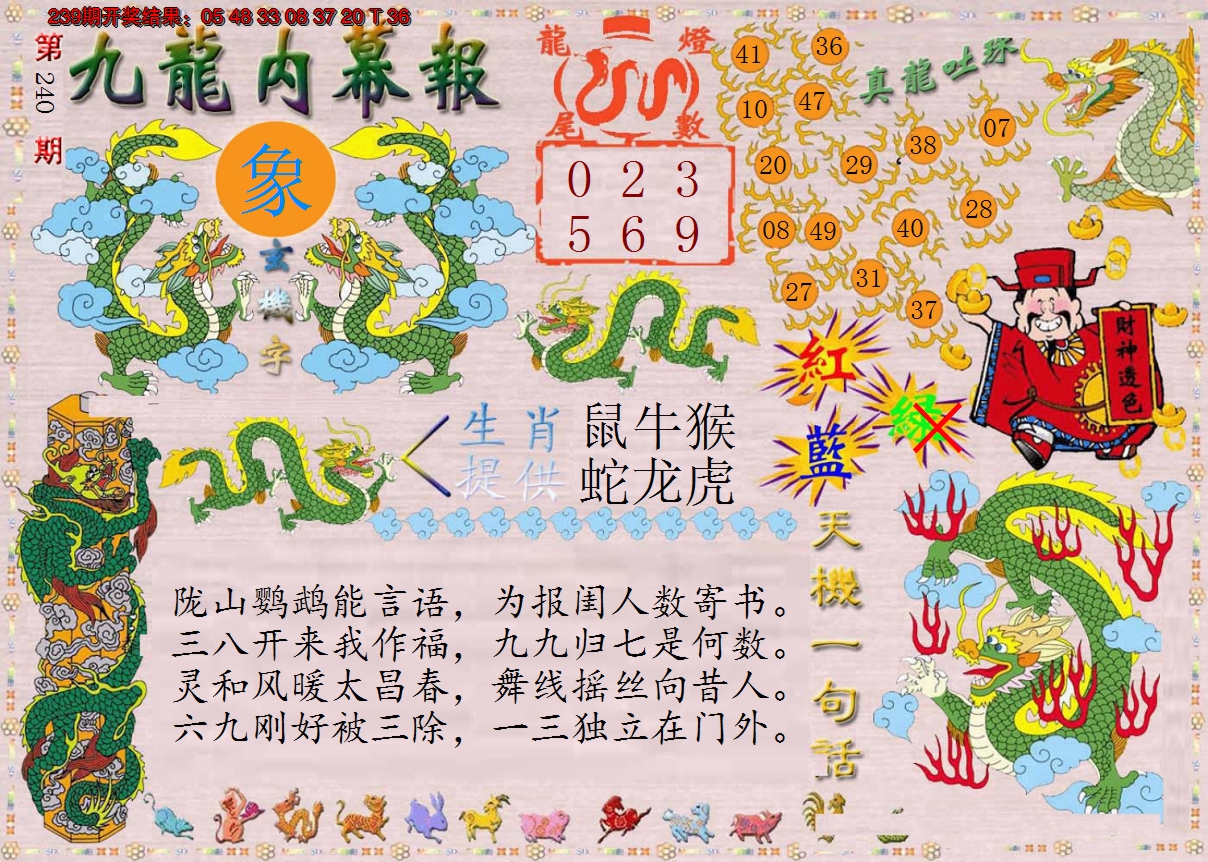 239期开奖结果：05 48 33 08 37 20 T 36
第240期
九龍内幕報
象
玄機字
龍燈
尾數
0 2 3
5 6 9
真龍吐珠
41 36
10 47
20 29 38 07
08 49 40 28
27 31 37
財神透色
紅
綠
藍
生肖 鼠牛猴
提供 蛇龙虎
天機一句話
陇山鹦鹉能言语，为报闺人数寄书。
三八开来我作福，九九归七是何数。
灵和风暖太昌春，舞线摇丝向昔人。
六九刚好被三除，一三独立在门外。